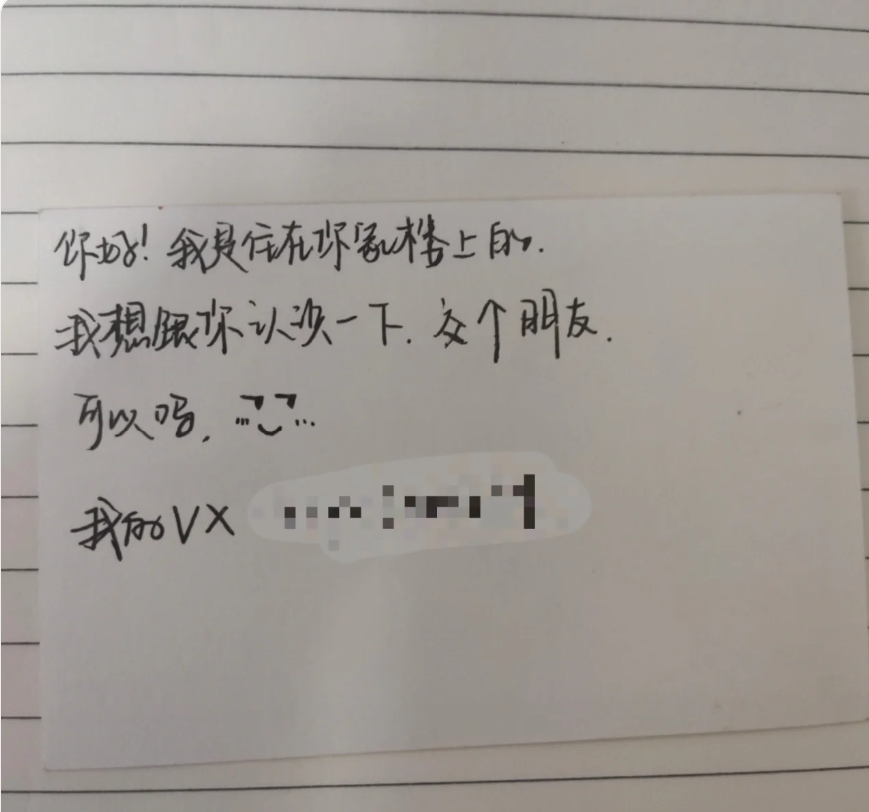 你好！我是住在你家楼上的.
我想跟你认识一下.交个朋友.
可以吗,
我的VX